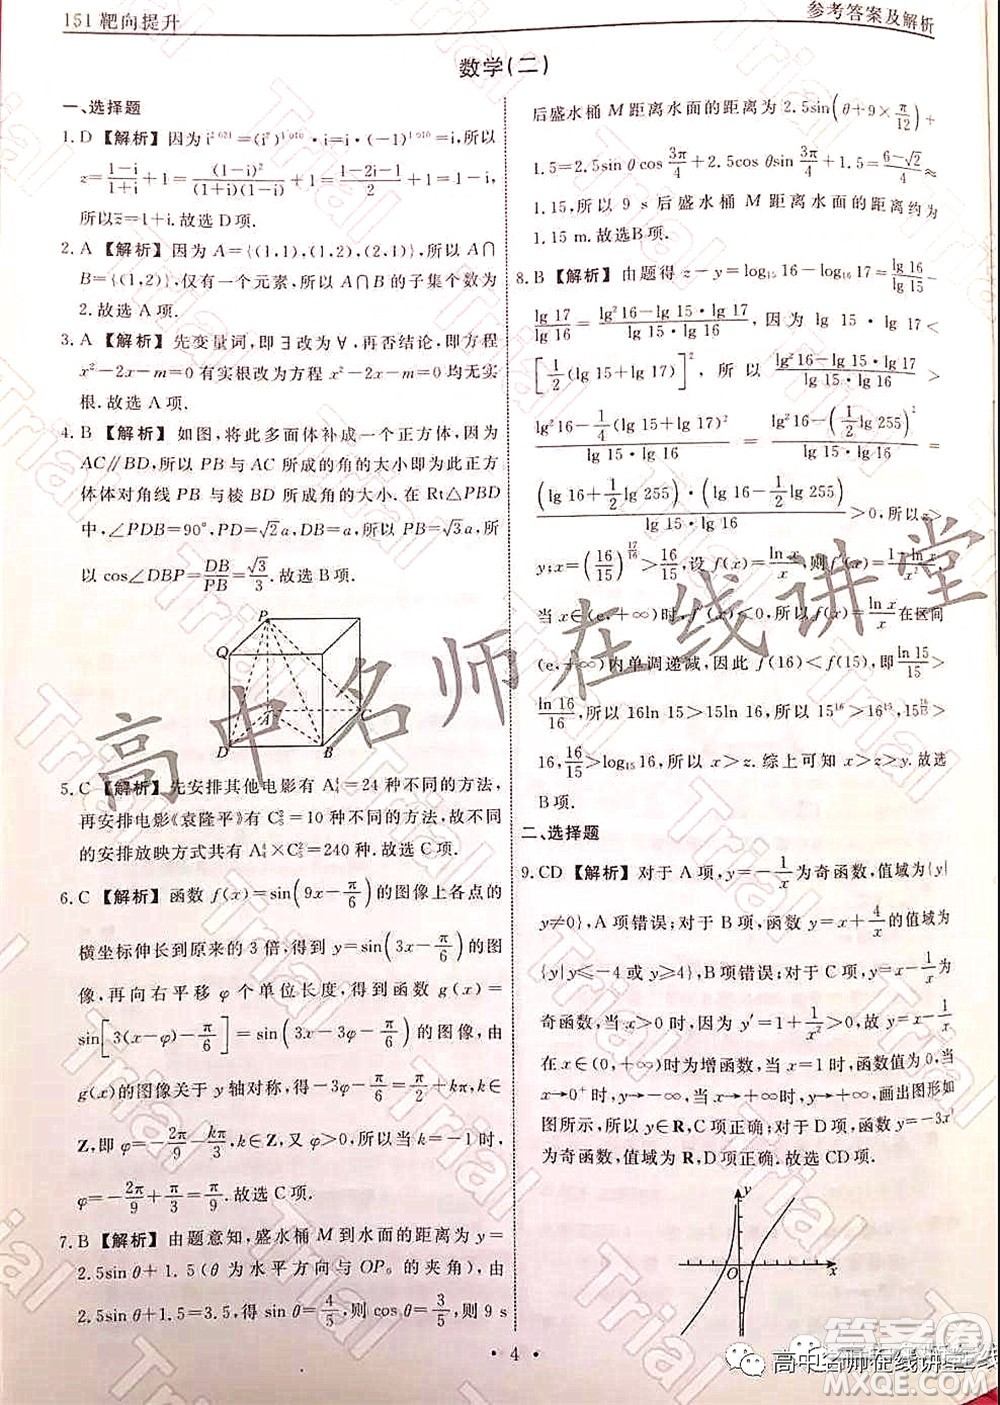 151 靶向提升
参考答案及解析
数学(二)
一、选择题
1. D 【解析】因为 i^{2 021}=(i²)^{1 010}·i=i·(-1)^{1 010}=i,所以
z=\frac{1-i}{1+i}+1=\frac{(1-i)²}{(1+i)(1-i)}+1=\frac{1-2i-1}{2}+1=1-i,
所以z̄=1+i.故选 D 项.
2. A 【解析】因为 A={(1,1),(1,2),(2,1)},所以 A∩
B={(1,2)},仅有一个元素,所以 A∩B 的子集个数为
2.故选 A 项.
3. A 【解析】先变量词,即∃改为∀,再否结论,即方程
x²-2x-m=0 有实根改为方程 x²-2x-m=0 均无实
根.故选 A 项.
4. B 【解析】如图,将此多面体补成一个正方体,因为
AC∥BD,所以 PB 与 AC 所成的角的大小即此正方
体体对角线 PB 与棱 BD 所成的角的大小.在 Rt△PBD
中,∠PDB=90°,PD=√2a,DB=a,所以 PB=√3a,所
以 cos∠DBP=\frac{DB}{PB}=\frac{√3}{3}.故选 B 项.
P
Q
C
D
B
5. C 【解析】先安排其他电影有 A_4^4=24 种不同的方法,
再安排电影《袁隆平》有 C_5^2=10 种不同的方法,故不同
的安排放映方式共有 A_4^4×C_5^2=240 种.故选 C 项.
6. C 【解析】函数 f(x)=sin(9x-\frac{π}{6})的图像上各点的
横坐标伸长到原来的 3 倍,得到 y=sin(3x-\frac{π}{6})的图
像,再向右平移 φ 个单位长度,得到函数 g(x)=
sin[3(x-φ)-\frac{π}{6}]=sin(3x-3φ-\frac{π}{6})的图像,由
g(x)的图像关于 y 轴对称,得-3φ-\frac{π}{6}=\frac{π}{2}+kπ,k∈
Z,即 φ=-\frac{2π}{9}-\frac{kπ}{3},k∈Z.所以 φ 的最小值为
φ=-\frac{2π}{9}+\frac{π}{3}=\frac{π}{9}.故选 C 项.
7. B 【解析】由题意知,盛水桶 M 到水面的距离为 y=
2.5sin θ+1.5(θ 为水平方向与 OP₀ 的夹角),由
2.5sin θ+1.5=3.5,得 sin θ=\frac{4}{5},则 cos θ=\frac{3}{5},则 9 s
后盛水桶 M 距离水面的距离为 2.5sin(θ+9×\frac{π}{12})+
1.5=2.5sin θcos\frac{3π}{4}+2.5cos θsin\frac{3π}{4}+1.5=\frac{6-√2}{4}≈
1.15,所以 9 s 后盛水桶 M 距离水面的距离约为
1.15 m.故选 B 项.
8. B 【解析】由题得 z-y=log₁₅16-log₁₆17=\frac{lg 16}{lg 15}-
\frac{lg 17}{lg 16}=\frac{lg²16-lg 15·lg 17}{lg 15·lg 16},因为 lg 15·lg 17<
[\frac{1}{2}(lg 15+lg 17)]²,所以 \frac{lg²16-lg 15·lg 17}{lg 15·lg 16}>
\frac{lg²16-\frac{1}{4}(lg 15+lg 17)²}{lg 15·lg 16}=\frac{lg²16-(\frac{1}{2}lg 255)²}{lg 15·lg 16}=
\frac{(lg 16+\frac{1}{2}lg 255)·(lg 16-\frac{1}{2}lg 255)}{lg 15·lg 16}>0,所以z>
y;x=(\frac{16}{15})^{\frac{17}{16}}>\frac{16}{15},设 f(x)=\frac{ln x}{x},则 f′(x)=\frac{1-ln x}{x²},
当 x∈(e,+∞)时,f′(x)<0,所以 f(x)=\frac{ln x}{x}在区间
(e,+∞)内单调递减,因此 f(16)<f(15),即\frac{ln 15}{15}>
\frac{ln 16}{16},所以 16ln 15>15ln 16,所以 15^{16}>16^{15},15^{\frac{16}{15}}>
16,\frac{16}{15}>log₁₅16,所以 x>z.综上可知 x>z>y.故选
B 项.
二、选择题
9. CD 【解析】对于 A 项,y=-\frac{1}{x}为奇函数,值域为{y|
y≠0},A 项错误;对于 B 项,函数 y=x+\frac{4}{x}的值域为
{y|y≤-4或y≥4},B 项错误;对于 C 项,y=x-\frac{1}{x}为
奇函数,当 x>0 时,因为 y′=1+\frac{1}{x²}>0,故该函数
在 x∈(0,+∞)时为增函数,当 x=1 时,函数值为0,
x→0⁺时,y→-∞;x→+∞时,y→+∞,画出图形如
图所示,所以 y∈R,C项正确;对于 D 项,函数 y=-3x³
为奇函数,值域为 R,D项正确.故选 CD 项.
y
O
x
• 4 •
高中名师在线讲堂
Trial
高中名师在线讲堂
答案圈
MXQE.COM